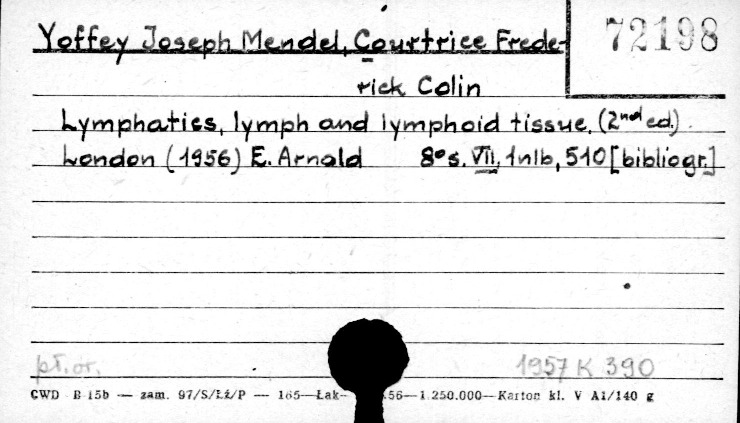 Yoffey Joseph Mendel, Courtrice Frede-
72198
rick Colin
Lymphatics, lymph and lymphoid tissue. (2nd ed.)
London (1956) E. Arnold 8° s. VII, 1nlb, 510 [bibliogr.]
pł. or. 1957 K 390
CWD B-15b — zam. 97/S/Łź/P — 165—Łak- 56—1.250.000—Karton kl. V A1/140 g